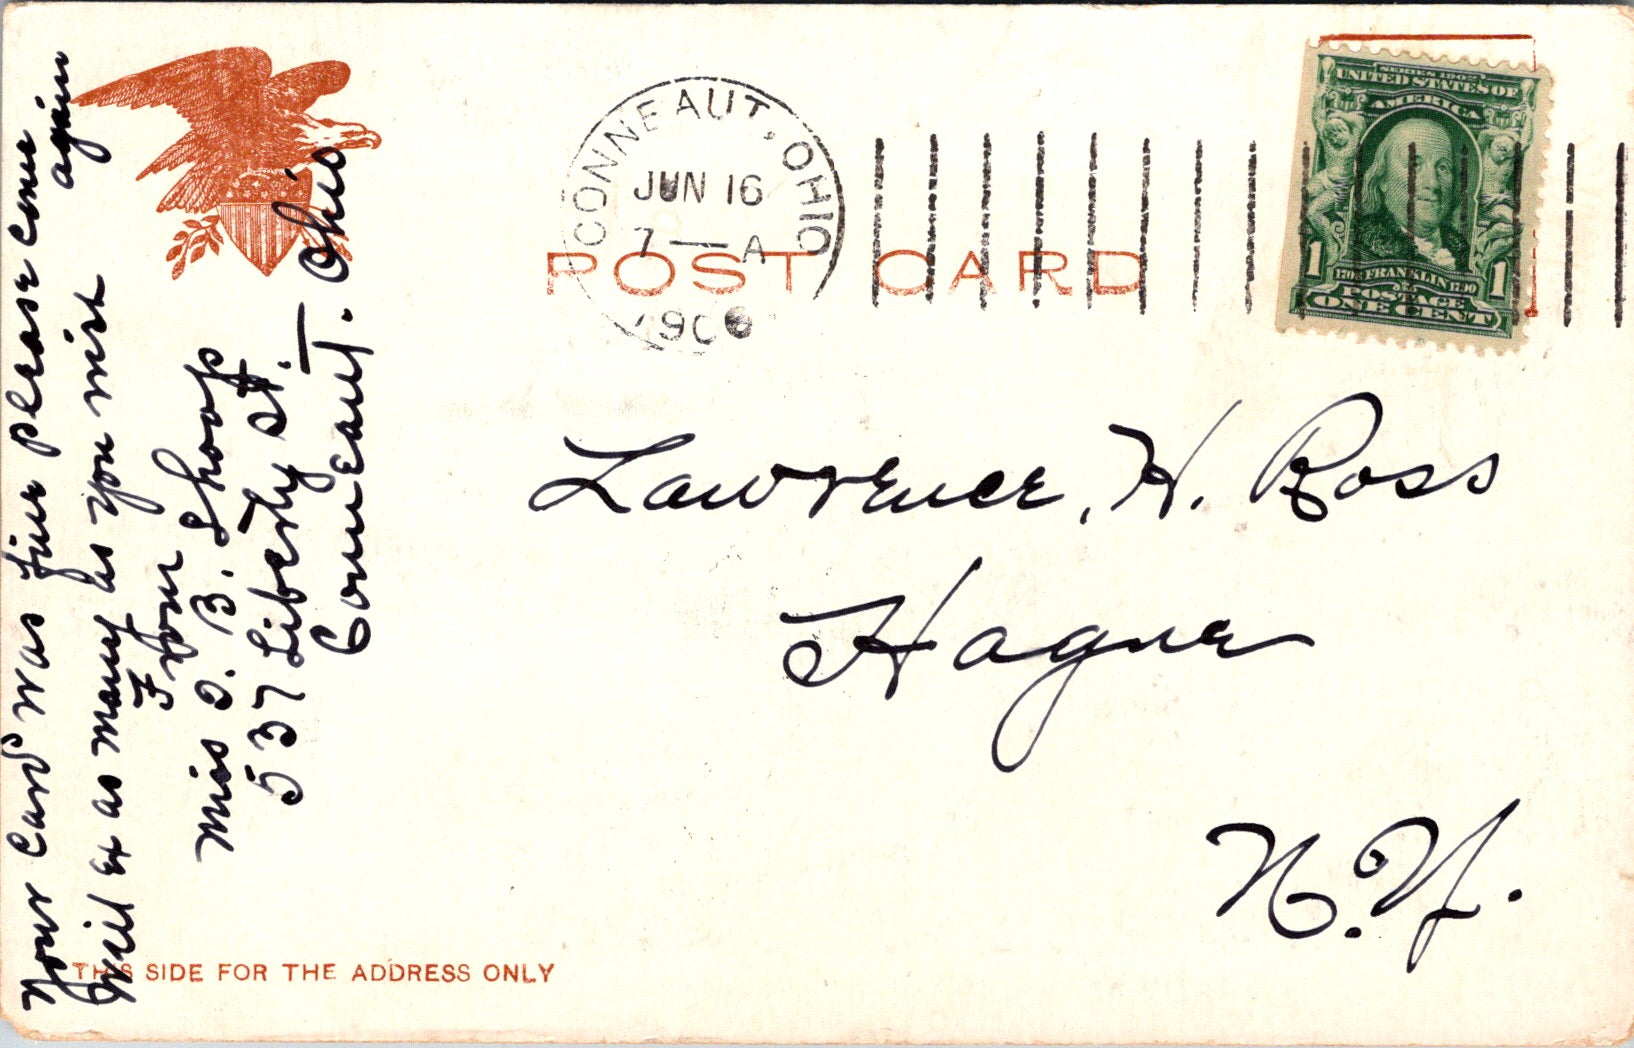 CONNEAUT, OHIO
JUN 16
7 — A
190
POST CARD
SERIES 1902
UNITED STATES OF
AMERICA
1 1706 FRANKLIN 1790 1
POSTAGE
ONE CENT
Lawrence, H. Ross
Hague
N.Y.
Your card was fine please come again
Will ex as many as you wish
From
Miss J. B. Shoop
537 Liberty St.
Conneaut. Ohio
THIS SIDE FOR THE ADDRESS ONLY